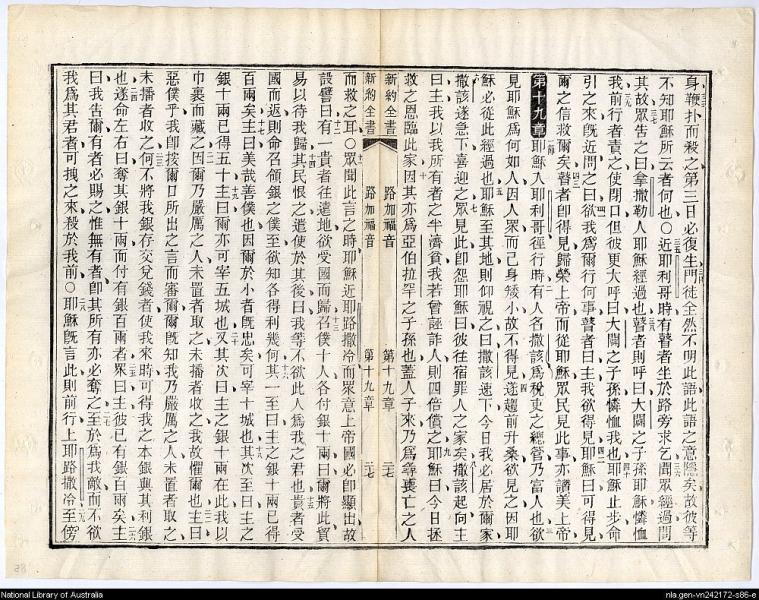 身鞭扑而殺之第三日必復生門徒全然不明此語此語之意隱矣故彼等
不知耶穌所云者何也〇近耶利哥時有瞽者坐於路旁求乞聞眾經過問
其故眾告之曰拿撒勒人耶穌經過也瞽者則呼曰大闢之子孫耶穌憐恤
我前行者責之使閉口但彼更大呼曰大闢之子孫憐恤我也耶穌止步命
引之來既近問之曰欲我爲爾行何事瞽者曰主我欲得見耶穌曰可得見
爾之信救爾矣瞽者即得見歸榮上帝而從耶穌眾民見此事亦讚美上帝
第十九章 耶穌入耶利哥徑行時有人名撒該爲稅吏之總管乃富人也欲
見耶穌爲何如人因人眾而己身矮小故不得見遂趨前升桑欲見之因耶
穌必從此經過也耶穌至其地則仰視之曰撒該速下今日我必居於爾家
撒該遂急下喜迎之眾見此即怨耶穌曰彼往宿罪人之家矣撒該起向主
曰主我以我所有者之半濟貧我若曾誣詐人則四倍償之耶穌曰今日拯
救之恩臨此家因其亦爲亞伯拉罕之子孫也蓋人子來乃爲尋喪亡之人
新約全書 路加福音 第十九章 三七
新約全書 路加福音 第十九章 三七
而救之耳〇眾聞此言之時耶穌近耶路撒冷而眾意上帝國必即顯出故
設譬曰有一貴者往遠地欲受國而歸召僕十人各付銀十兩曰爾將此貿
易以待我歸其民恨之遣使於其後曰我等不欲此人爲我之君也貴者受
國而返則命召領銀之僕至欲知各得利幾何其一至曰主之銀十兩已得
百兩矣主曰美哉善僕也因爾於小者既忠矣可宰十城也其次至曰主之
銀十兩已得五十主曰爾亦可宰五城也又其次曰主之銀十兩在此我以
巾裹而藏之因爾乃嚴厲之人未置者取之未播者收之我故懼爾也主曰
惡僕乎我即按爾口所出之言而審爾爾既知我乃嚴厲之人未置者取之
未播者收之何不將我銀存交兌錢者使我來時可得我之本銀與其利銀
也遂命左右曰奪其銀十兩而付有銀百兩者眾曰主彼已有銀百兩矣主
曰我告爾有者必賜之惟無有者即其所有亦必奪之至於爲我敵而不欲
我爲其君者可拽之來殺於我前〇耶穌既言此則前行上耶路撒冷至傍
National Library of Australia
nla.gen-vn242172-s86-e